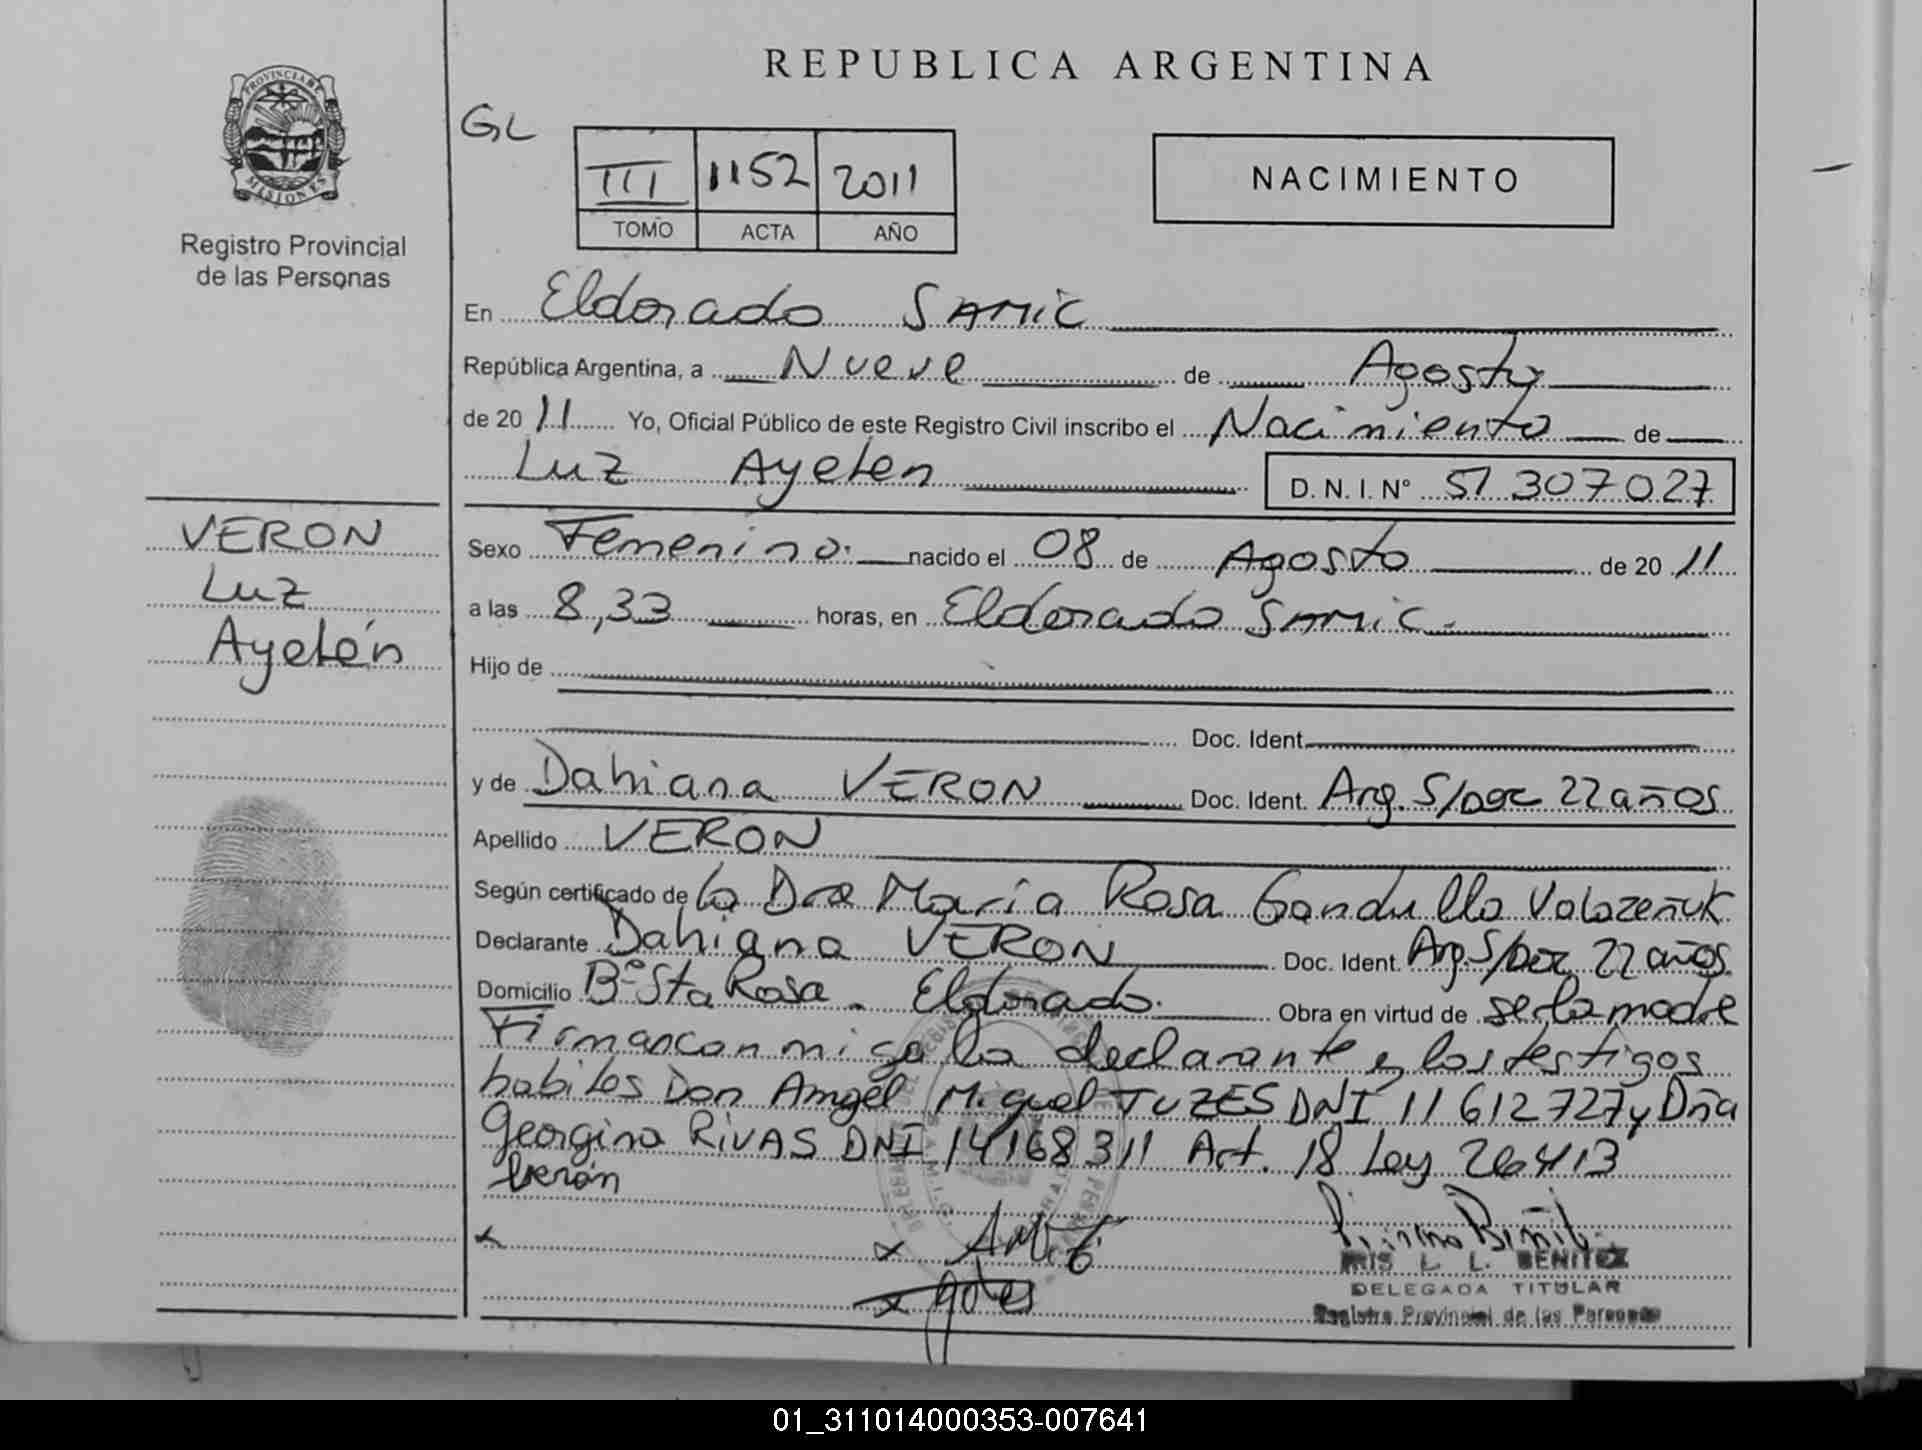 REPUBLICA ARGENTINA
PROVINCIA DE
MISIONES
Registro Provincial
de las Personas
GL
III 1152 2011
TOMO ACTA AÑO
NACIMIENTO
En Eldorado SAMIC
República Argentina, a Nueve de Agosto
de 20 11 Yo, Oficial Público de este Registro Civil inscribo el Nacimiento de
Luz Ayelen D. N. I. N° 51 307 027
VERON
Luz
Ayelén
Sexo Femenino. nacido el 08 de Agosto de 20 11
a las 8,33 horas, en Eldorado SAMIC.
Hijo de
Doc. Ident.
y de Dahiana VERON Doc. Ident. Arg. S/Doc 22 años
Apellido VERON
Según certificado de la Dra María Rosa Gandulla Valozeñuk
Declarante Dahiana VERON Doc. Ident. Arg S/Doc 22 años
Domicilio B° Sta Rosa. Eldorado. Obra en virtud de ser la madre
Firman conmigo la declarante y los testigos
habiles Don Angel Miguel TUZES DNI 11 612 727 y Dña
Georgina RIVAS DNI 14168311 Art. 18 Ley 26413
Verón
IRIS L. L. BENITEZ
DELEGADA TITULAR
Registro Provincial de las Personas
01_311014000353-007641